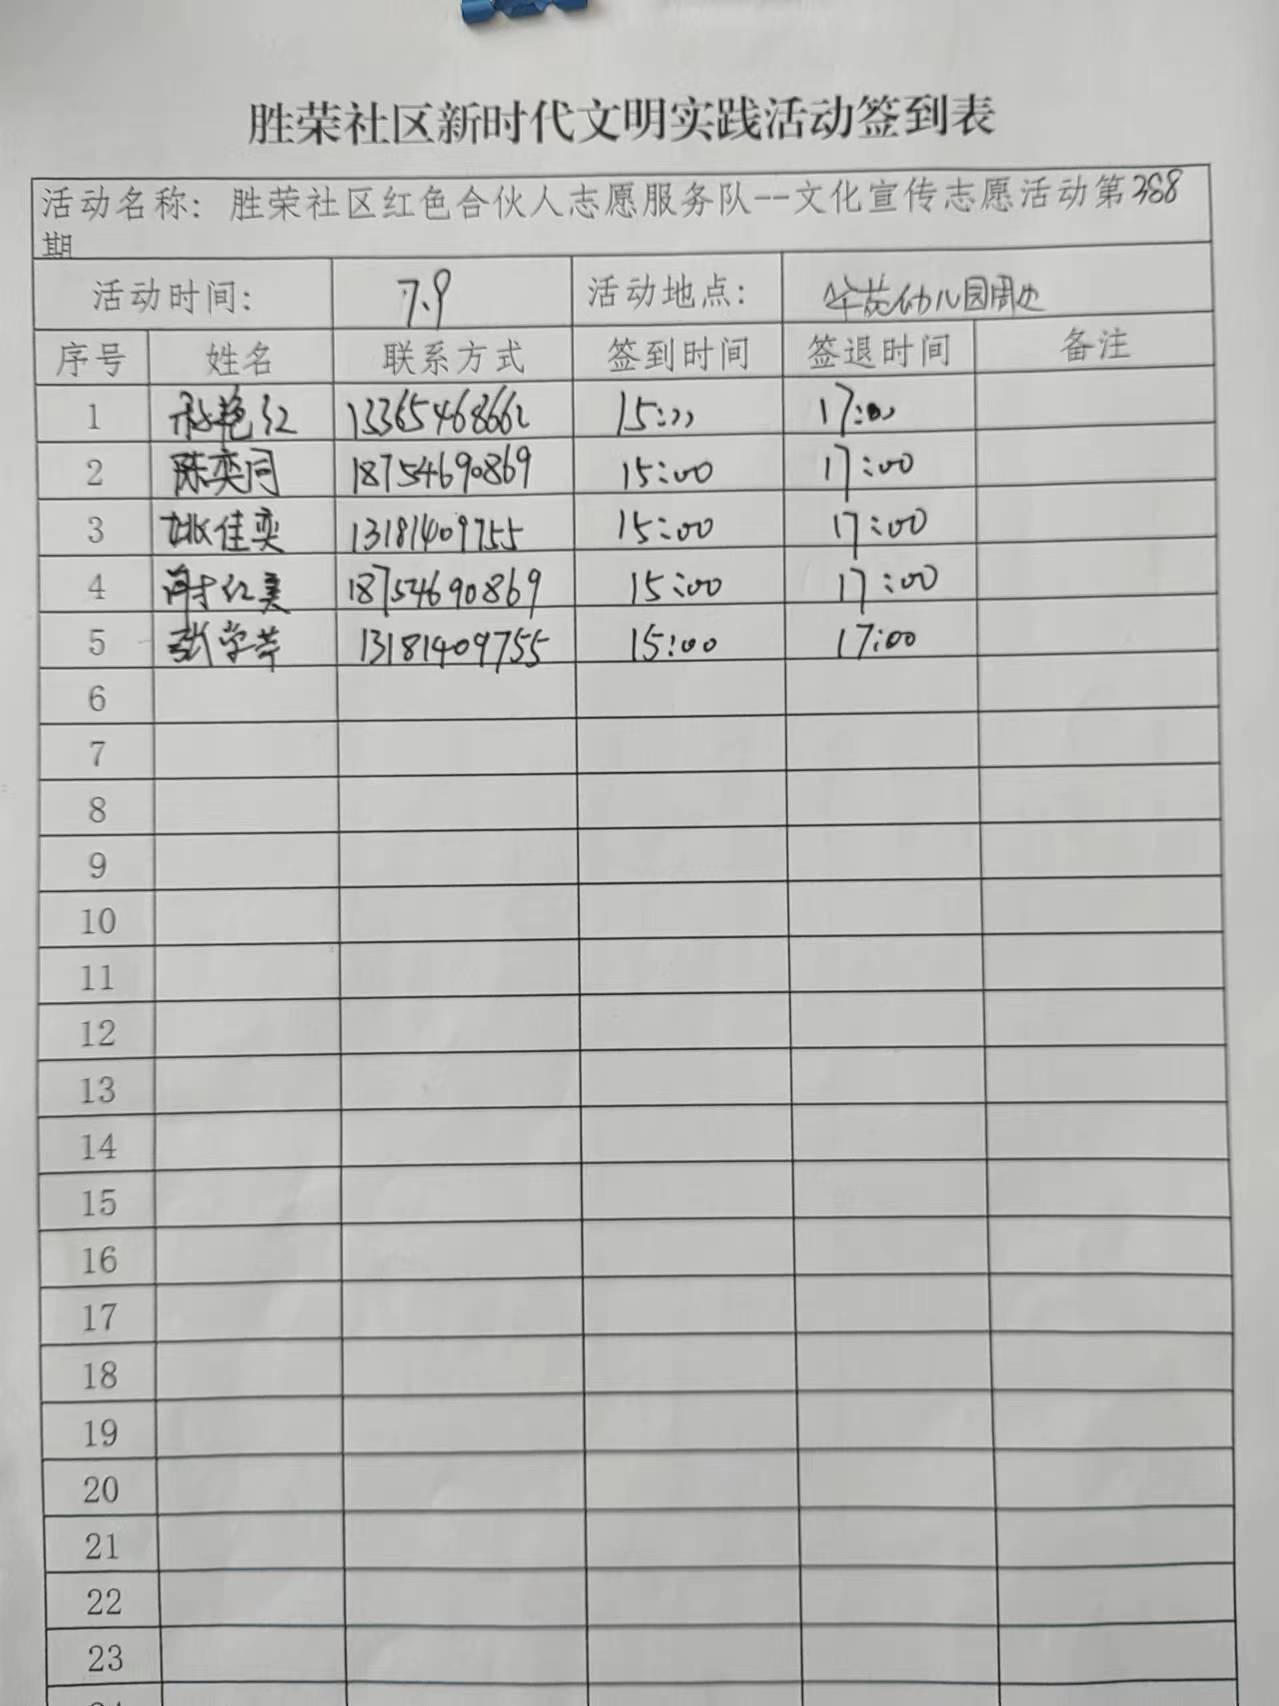 胜荣社区新时代文明实践活动签到表
活动名称：胜荣社区红色合伙人志愿服务队--文化宣传志愿活动第388
期
活动时间： 7.9 活动地点： 华苑幼儿园周边
序号 姓名 联系方式 签到时间 签退时间 备注
1 艳红 13365468662 15:00 17:00
2 陈奕同 18754690869 15:00 17:00
3 姚佳奕 13181409755 15:00 17:00
4 谢红美 18754690869 15:00 17:00
5 张学苹 13181409755 15:00 17:00
6
7
8
9
10
11
12
13
14
15
16
17
18
19
20
21
22
23